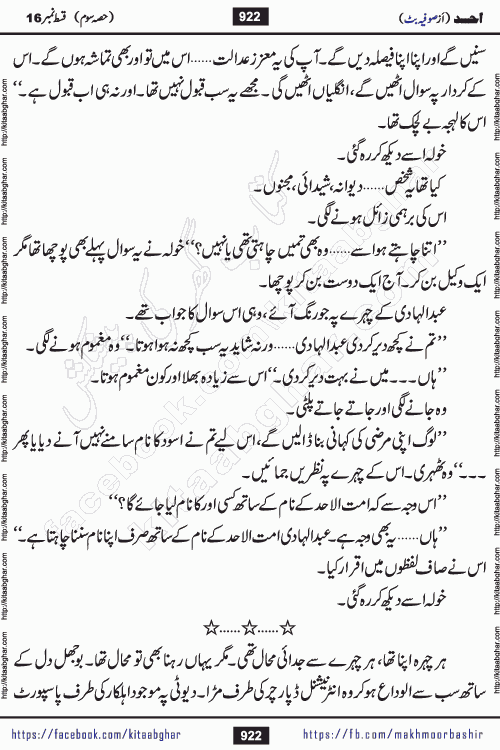 احمد (از صوفیہ بٹ)
922
(حصہ سوم) قسط نمبر 16
سنیں گے اور اپنا اپنا فیصلہ دیں گے۔ آپ کی یہ معزز عدالت......اس میں تو اور بھی تماشہ ہوں گے۔ اس
کے کردار پہ سوال اٹھیں گے، انگلیاں اٹھیں گی۔ مجھے یہ سب قبول نہیں تھا۔ اور نہ ہی اب قبول ہے۔‘‘
اس کا لہجہ بے لچک تھا۔
خولہ اسے دیکھ کر رہ گئی۔
کیا تھا یہ شخص......دیوانہ، شیدائی، مجنوں۔
اس کی برہمی زائل ہونے لگی۔
’’اتنا چاہتے ہو اسے......وہ بھی تمہیں چاہتی تھی یا نہیں؟‘‘ خولہ نے یہ سوال پہلے بھی پوچھا تھا مگر
ایک وکیل بن کر۔ آج ایک دوست بن کر پوچھا۔
عبدالہادی کے چہرے پہ جو رنگ آئے، وہی اس سوال کا جواب تھے۔
’’تم نے کچھ دیر کر دی عبدالہادی......ورنہ شاید یہ سب کچھ نہ ہوا ہوتا۔‘‘ وہ مغموم ہونے لگی۔
’’ہاں ۔۔۔ میں نے بہت دیر کر دی۔‘‘ اس سے زیادہ بھلا اور کون مغموم ہوتا۔
وہ جانے لگی اور جاتے جاتے پلٹی۔
’’لوگ اپنی مرضی کی کہانی بنا ڈالیں گے، اس لیے تم نے اسود کا نام سامنے نہیں آنے دیا یا پھر
۔۔۔‘‘ وہ ٹھہری۔ اس کے چہرے پہ نظریں جمائیں۔
’’اس وجہ سے کہ امت الاحد کے نام کے ساتھ کسی اور کا نام لیا جائے گا؟‘‘
’’ہاں......یہ بھی وجہ ہے۔ عبدالہادی امت الاحد کے نام کے ساتھ صرف اپنا نام سننا چاہتا ہے۔‘‘
اس نے صاف لفظوں میں اقرار کیا۔
خولہ اسے دیکھ کر رہ گئی۔
☆......☆......☆
ہر چہرہ اپنا تھا، ہر چہرے سے جدائی محال تھی۔ مگر یہاں رہنا بھی تو محال تھا۔ بوجھل دل کے
ساتھ سب سے الوداع ہو کر وہ انٹرنیشنل ڈپارچر کی طرف مڑا۔ ڈیوٹی پہ موجود اہلکار کی طرف پاسپورٹ
https://facebook.com/kitaabghar
922
https://fb.com/makhmoorbashir
http://kitaabghar.com